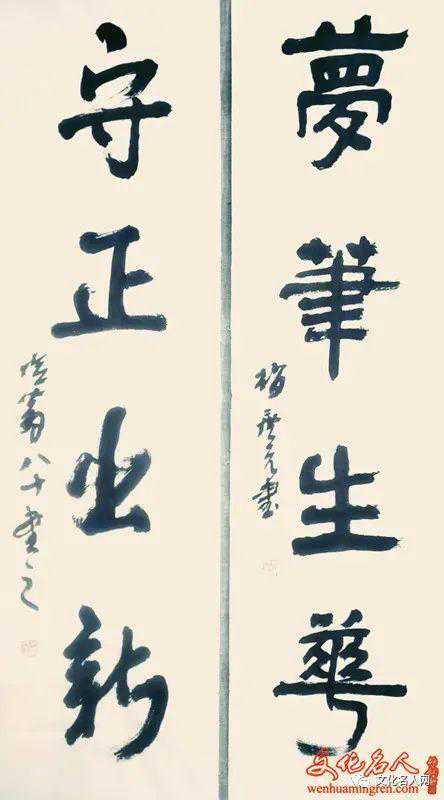 夢筆生華
書
守正出新
八十書之
文化名人
文化名人网
wenhuamingren.com